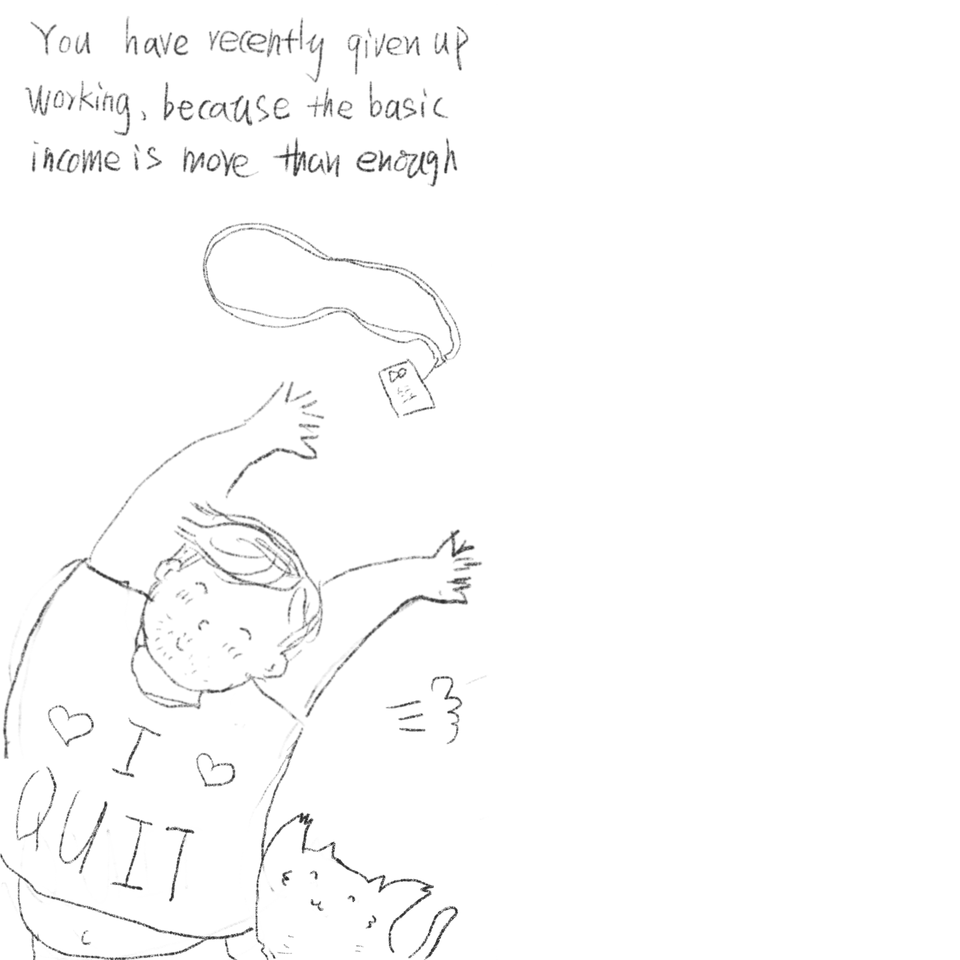 You have recently given up
working, because the basic
income is more than enough
I
QUIT